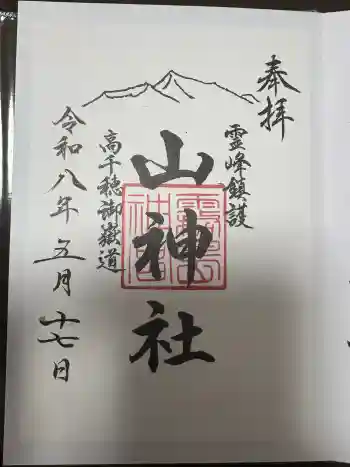 奉拝
霊峰鎮護
山神社
高千穂御嶽道
令和八年五月十七日